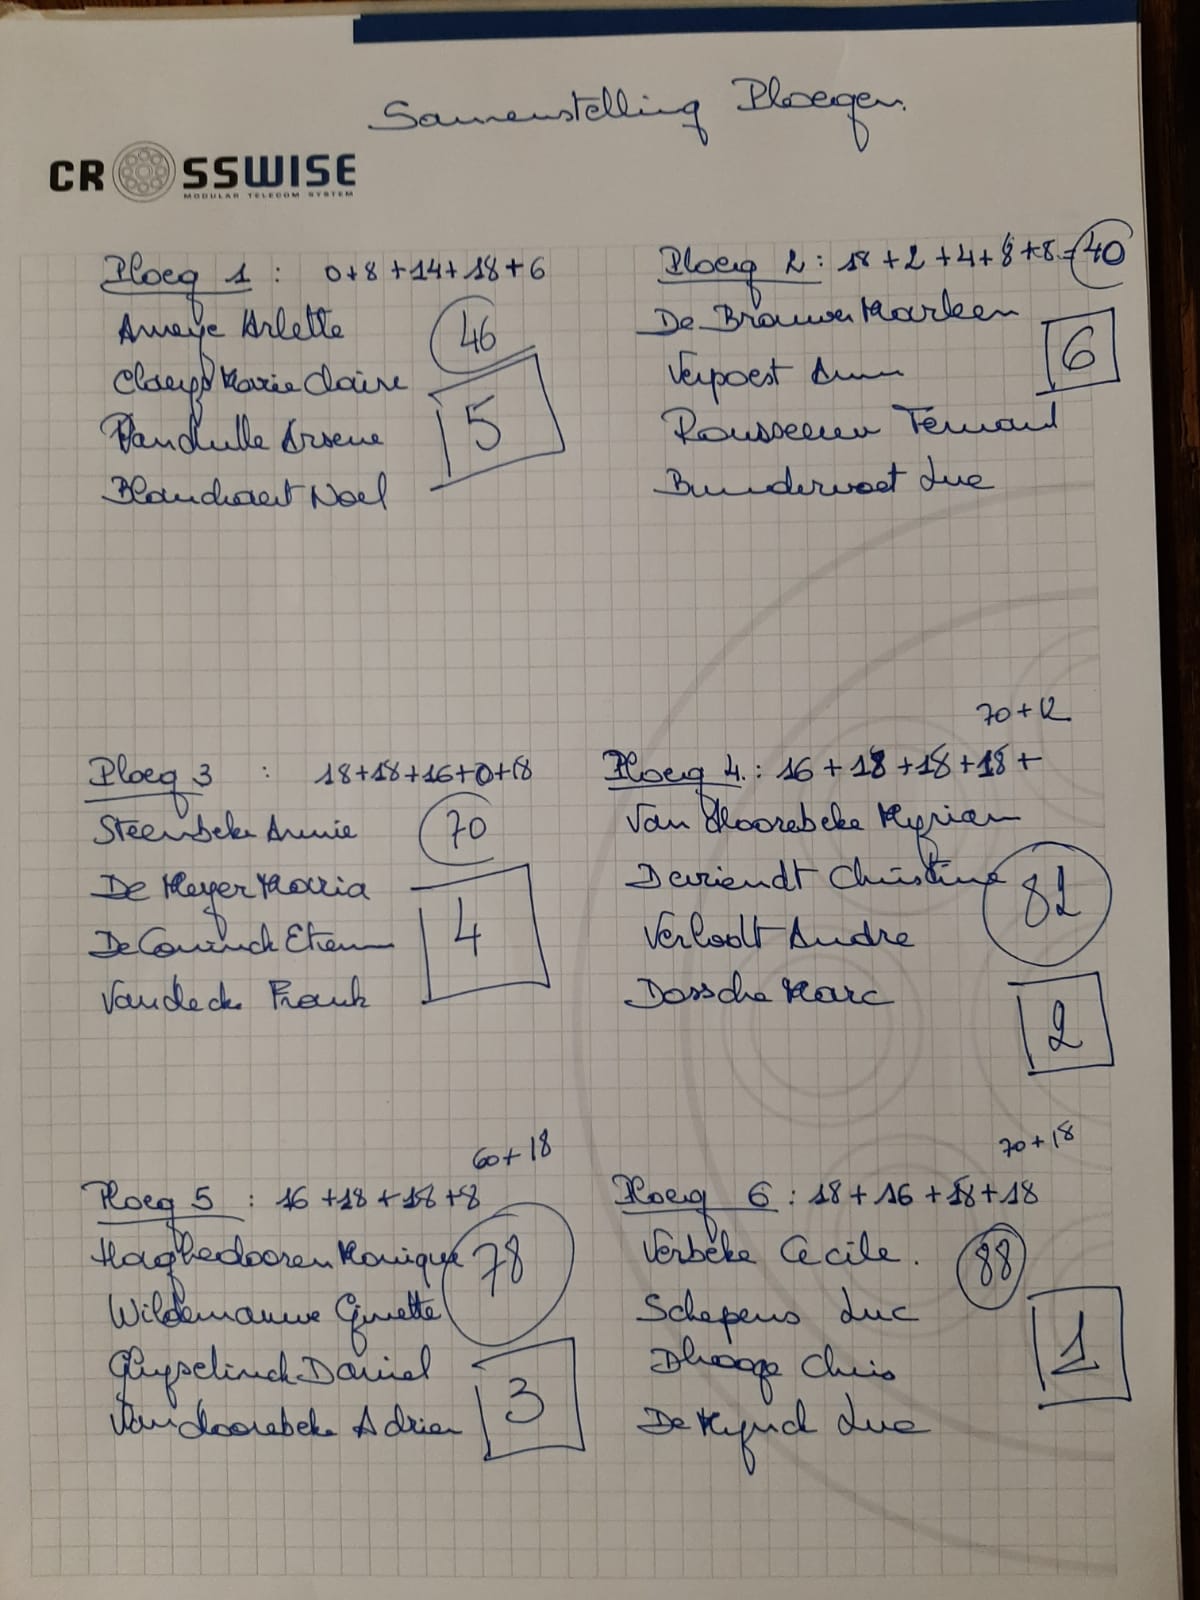 Samenstelling Ploegen.
CROSSWISE
MODULAR TELECOM SYSTEM
Ploeg 1 : 0+8+14+18+6
Ameye Arlette
46
Claeys Marie Claire
Vandulle Arsene
5
Blanckaert Noel
Ploeg 2 : 18+2+4+8+8=40
De Brouwer Marleen
6
Verpoest Ann
Rousseeuw Fernand
Bundervoet Luc
Ploeg 3 : 18+18+16+0+18
Steenbeke Annie
70
De Meyer Maria
De Coninck Etienne
4
Vandecke Frank
70+12
Ploeg 4. : 16+18+18+18+
Van Hoorebeke Myriam
Devriendt Christine
82
Verloodt Andre
Dossche Marc
2
60+18
Ploeg 5 : 16+18+18+8
Haghedooren Monique
78
Wildemauwe Ginette
Ghyselinck Daniel
3
Van hoorebeke Adrien
70+18
Ploeg 6 : 18+16+18+18
Verbeke Cecile.
88
Schepens Luc
1
Dhooge Chris
De Mynck Luc